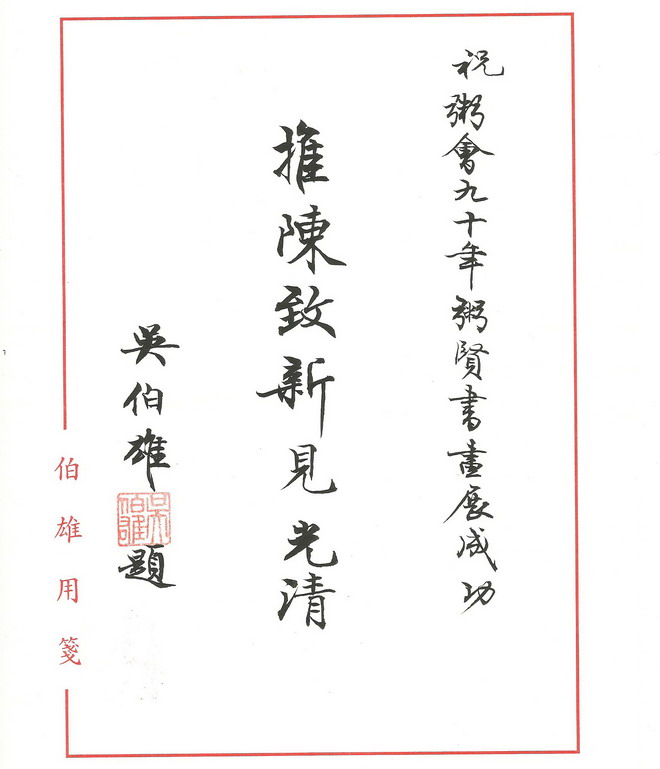 祝粥會九十年粥賢書畫展成功
推陳致新見光清
吳伯雄題
吳伯雄
伯雄用箋